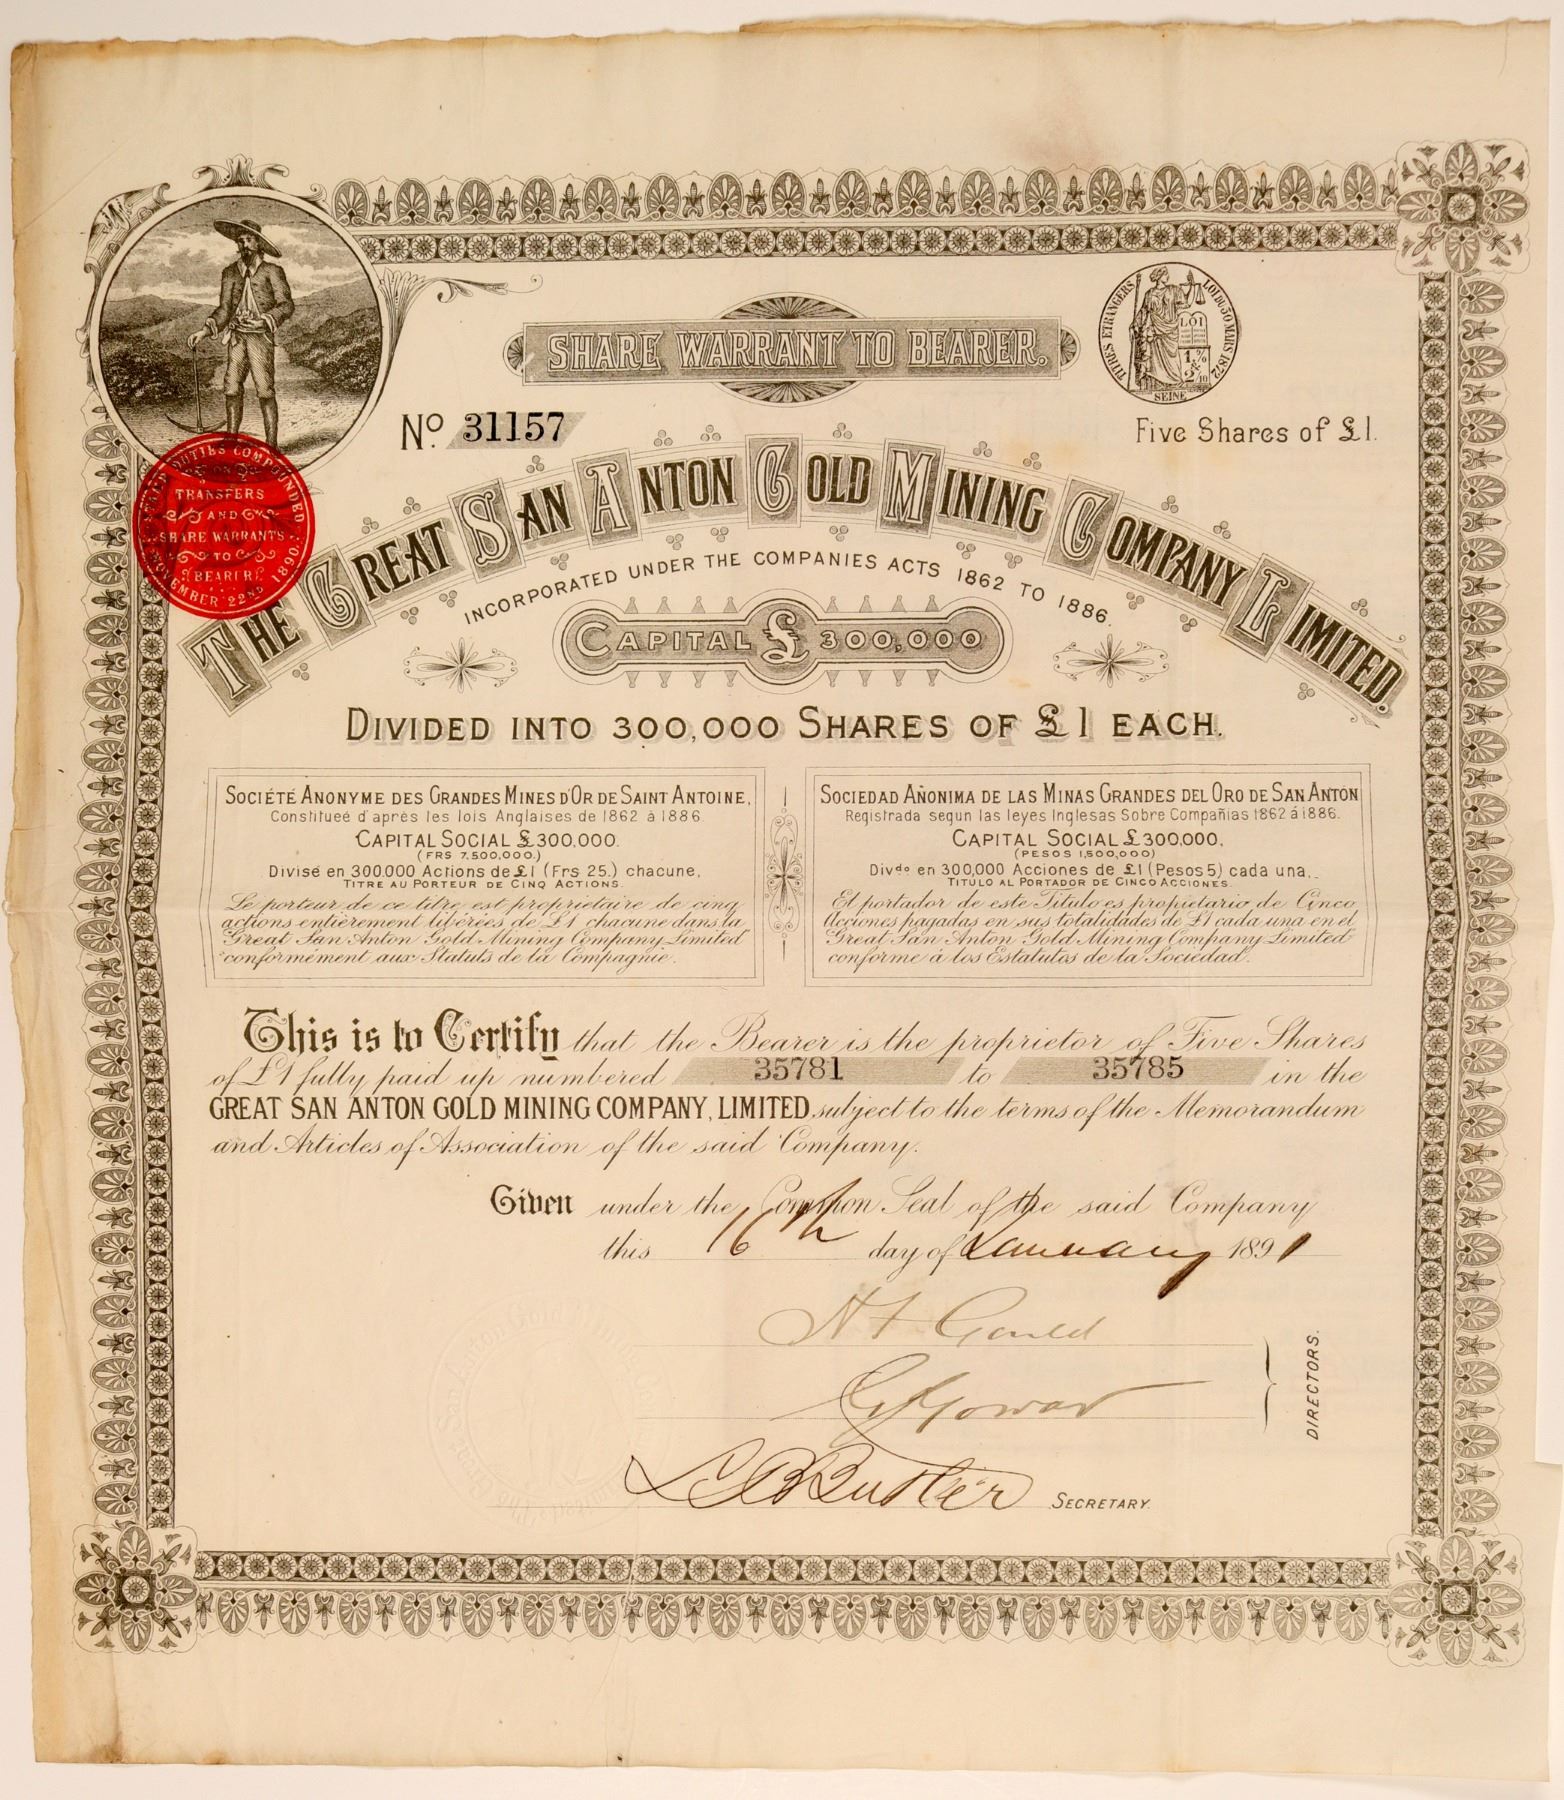 SHARE WARRANT TO BEARER.
TITRES ETRANGERS LOI DU 30 MARS 1872
LOI
1 % & 2/10
SEINE
No. 31157
Five Shares of £1.
STAMP DUTIES COMPOUNDED
ON
TRANSFERS
AND
SHARE WARRANTS
TO
BEARER
NOVEMBER 22ND 1890.
THE GREAT SAN ANTON GOLD MINING COMPANY LIMITED.
INCORPORATED UNDER THE COMPANIES ACTS 1862 TO 1886.
CAPITAL £ 300,000
DIVIDED INTO 300,000 SHARES OF £1 EACH.
SOCIÉTÉ ANONYME DES GRANDES MINES D'OR DE SAINT ANTOINE,
Constitueé d'après les lois Anglaises de 1862 à 1886.
CAPITAL SOCIAL £300,000.
(FRS 7,500,000.)
Divisé en 300.000 Actions de £1 (Frs 25.) chacune,
TITRE AU PORTEUR DE CINQ ACTIONS.
Le porteur de ce titre est proprietaire de cinq
actions entièrement libérées de £1 chacune dans la
Great San Anton Gold Mining Company Limited
conformément aux Statuts de la Compagnie.
SOCIEDAD AÑONIMA DE LAS MINAS GRANDES DEL ORO DE SAN ANTON
Registrada segun las leyes Inglesas Sobre Compañias 1862 á 1886.
CAPITAL SOCIAL £300,000,
(PESOS 1,500,000)
Divdo en 300,000 Acciones de £1 (Pesos 5) cada una,
TITULO AL PORTADOR DE CINCO ACCIONES.
El portador de este Titulo es propietario de Cinco
Acciones pagadas en sus totalidades de £1 cada una en el
Great San Anton Gold Mining Company Limited
conforme á los Estatutos de la Sociedad.
This is to Certify that the Bearer is the proprietor of Five Shares
of £1 fully paid up numbered 35781 to 35785 in the
GREAT SAN ANTON GOLD MINING COMPANY, LIMITED, subject to the terms of the Memorandum
and Articles of Association of the said Company.
Given under the Common Seal of the said Company
this 16th day of January 1891
Gould
DIRECTORS.
Butler SECRETARY.